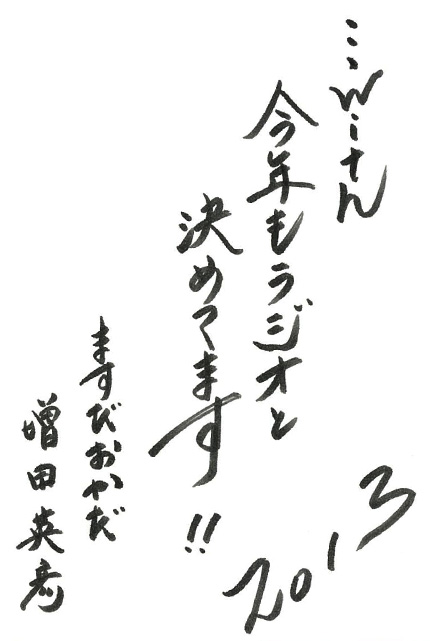 ミューさん
今年もラジオと
決めてます!!
ますだおかだ
増田英彦
2013